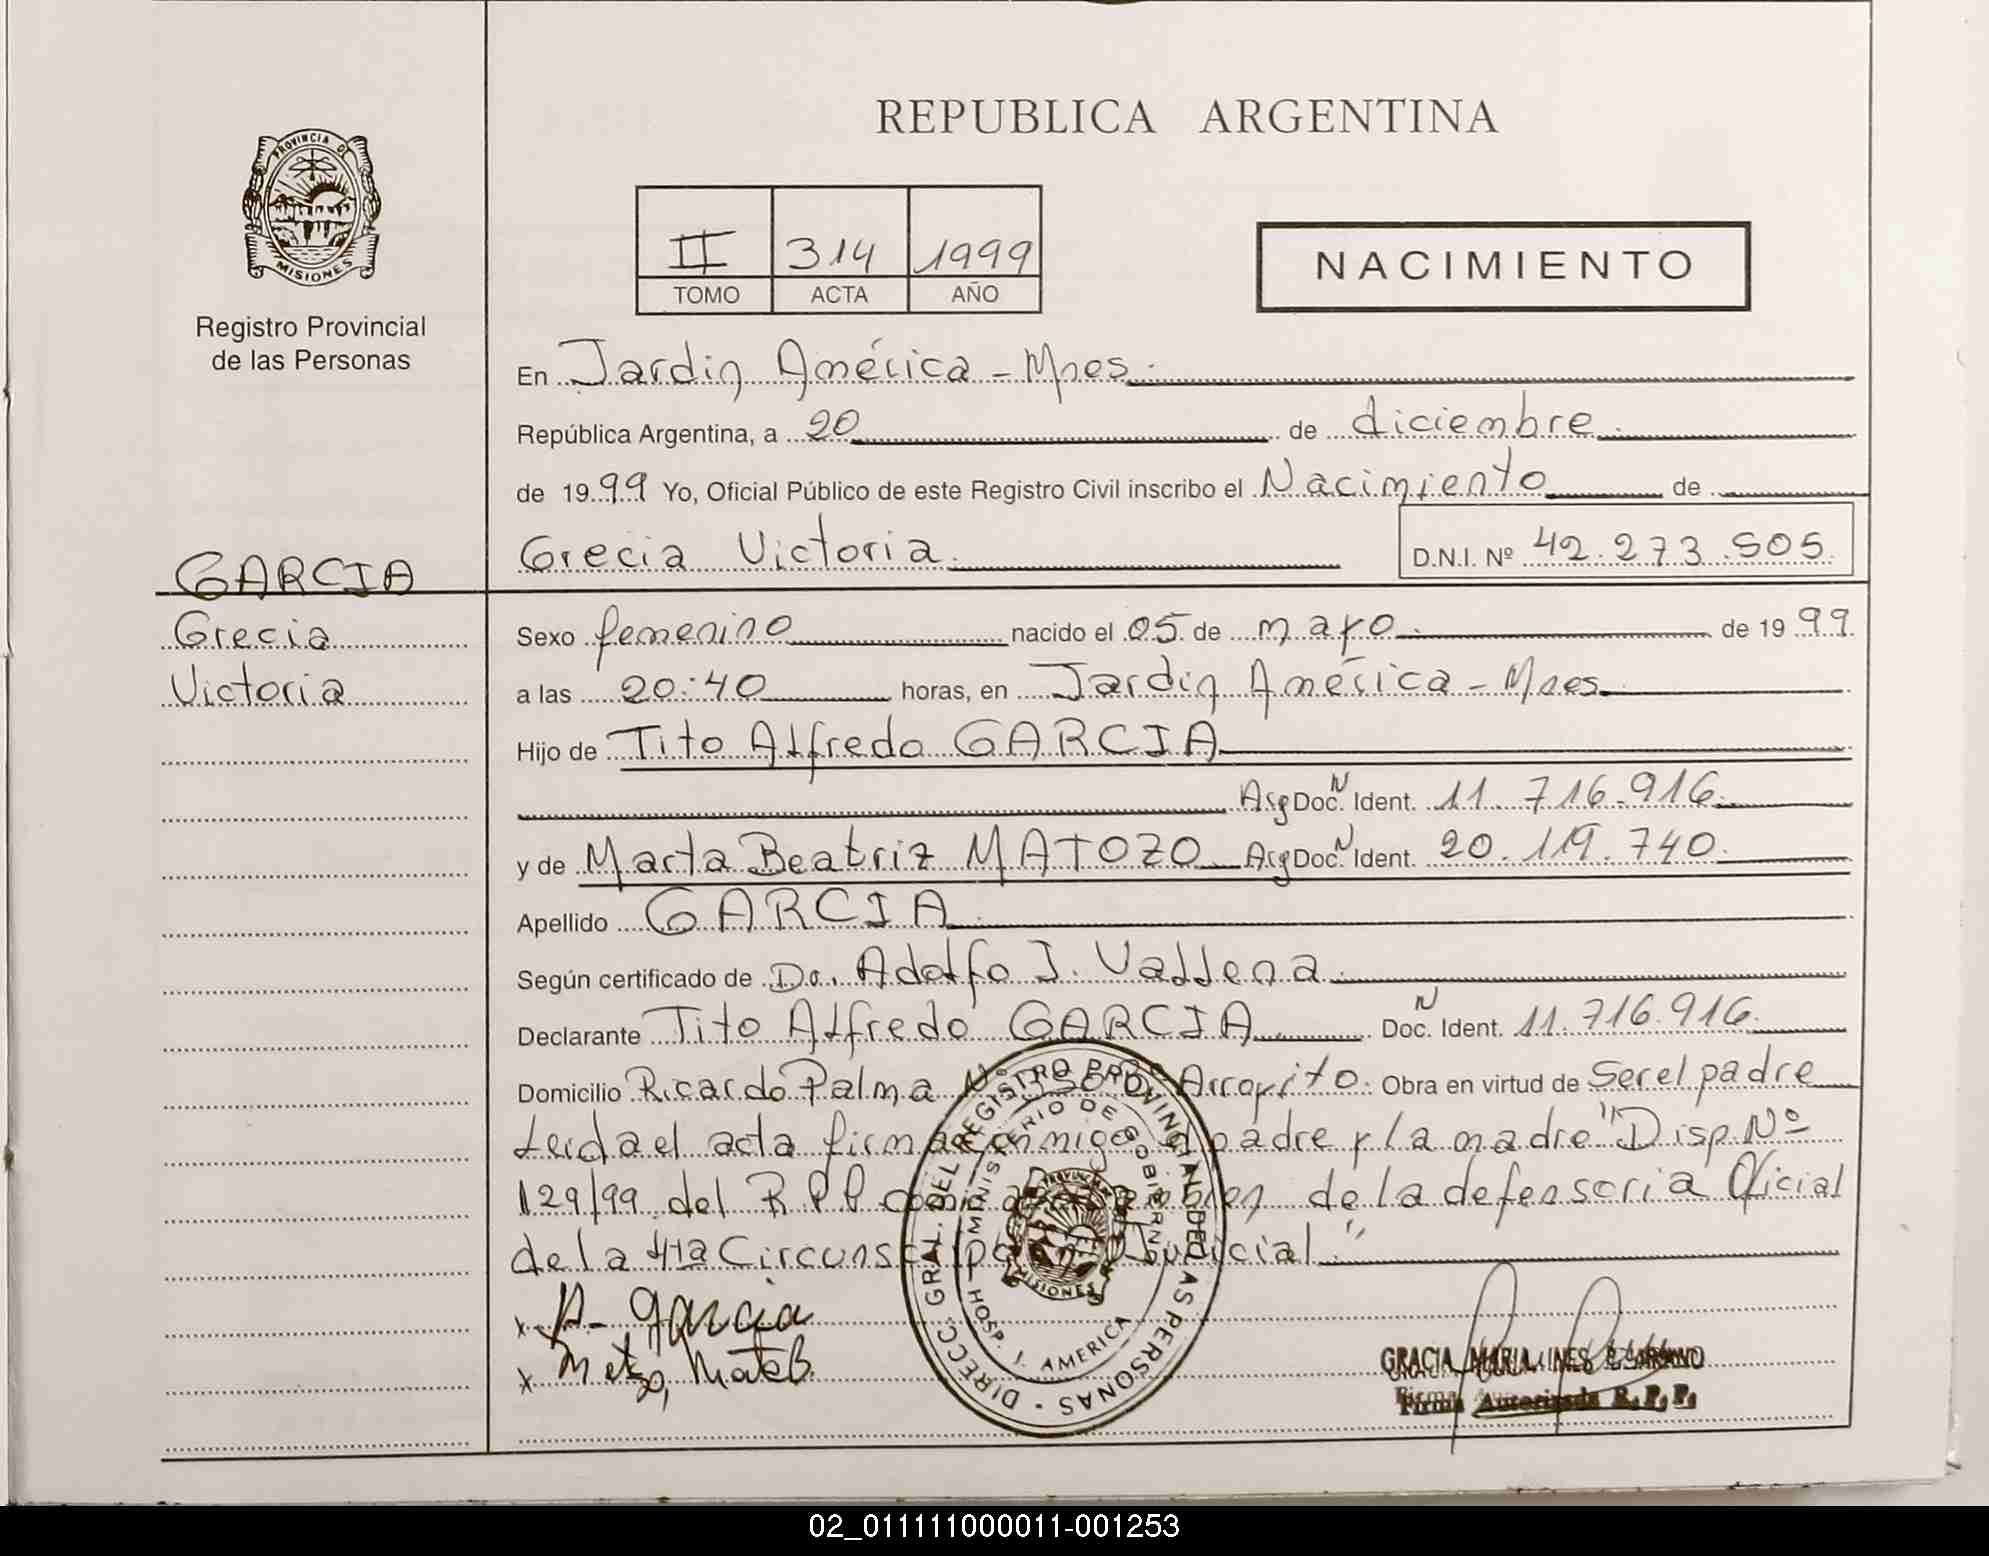 REPUBLICA ARGENTINA
PROVINCIA DE
MISIONES
Registro Provincial
de las Personas
II 314 1999
TOMO ACTA AÑO
NACIMIENTO
En Jardin América - Mnes.
República Argentina, a 20 de diciembre
de 1999 Yo, Oficial Público de este Registro Civil inscribo el Nacimiento de
Grecia Victoria
D.N.I. Nº 42.273.505
GARCIA
Grecia
Victoria
Sexo femenino nacido el 05 de mayo de 1999
a las 20:40 horas, en Jardin América - Mnes
Hijo de Tito Alfredo GARCIA
Arg Doc. N Ident. 11.716.916
y de Marta Beatriz MATOZO Arg Doc. N Ident. 20.119.740
Apellido GARCIA
Según certificado de Dr. Adolfo J.
Declarante Tito Alfredo GARCIA Doc. N Ident. 11.716.916
Domicilio Ricardo Palma Nº Arroyito. Obra en virtud de Ser el padre
Leida el acta firman conmigo el padre y la madre "Disp. Nº
129/99 del R.P.P. de la defensoria Oficial
de la 4ta Circunscripción Judicial."
x A- Garcia
x
DIRECC. GRAL. DEL REGISTRO PROVINCIAL DE LAS PERSONAS
MINISTERIO DE GOBIERNO
HOSP. J. AMERICA
MISIONES
GRACIA MARIA INES
Firma Autorizada R. P. P.
02_011111000011-001253